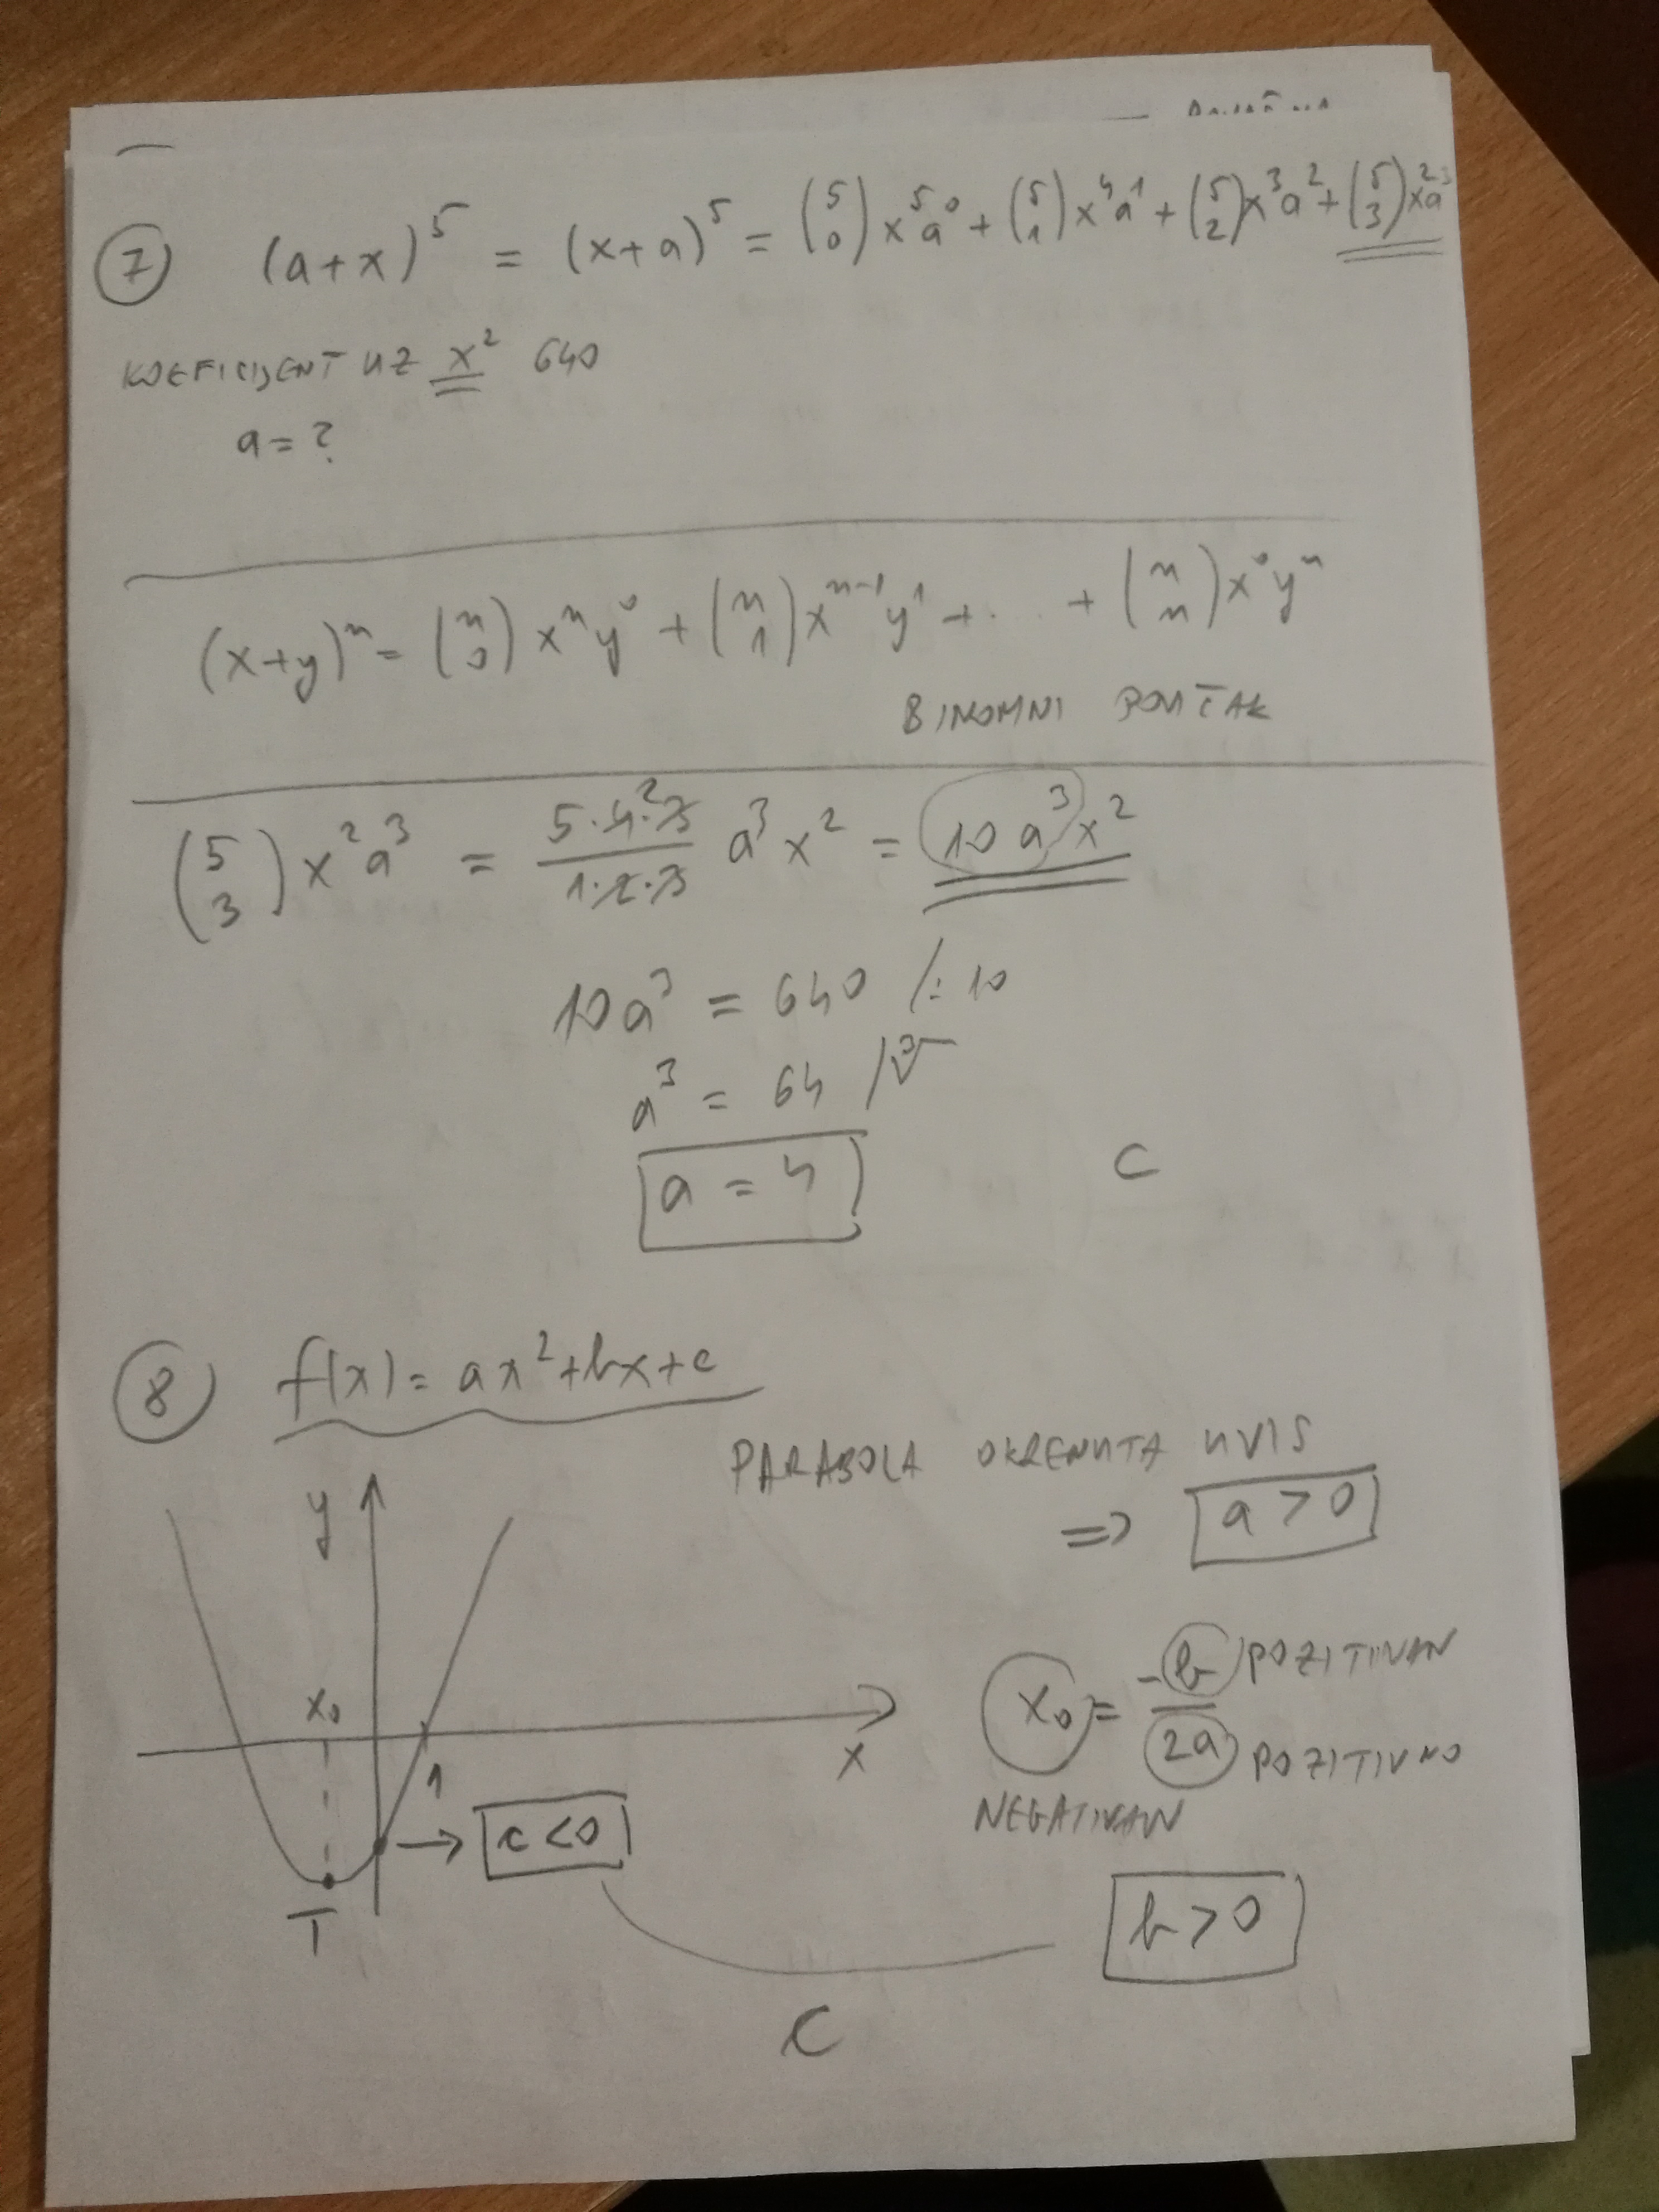 7 (a+x)^5 = (x+a)^5 = (5 0) x^5 a^0 + (5 1) x^4 a^1 + (5 2) x^3 a^2 + (5 3) x^2 a^3
KOEFICIJENT UZ x^2 640
a = ?
(x+y)^n = (n 0) x^n y^0 + (n 1) x^{n-1} y^1 + ... + (n n) x^0 y^n
BINOMNI POUČAK
(5 3) x^2 a^3 = 5·4·3 / 1·2·3 a^3 x^2 = 10 a^3 x^2
2
10a^3 = 640 /: 10
a^3 = 64 /∛
a = 4
C
8 f(x) = ax^2+bx+c
PARABOLA OKRENUTA UVIS
⇒ a > 0
y
x0
x
1
T
→ c < 0
x0 = -b / 2a
POZITIVAN
POZITIVNO
NEGATIVAN
b > 0
C